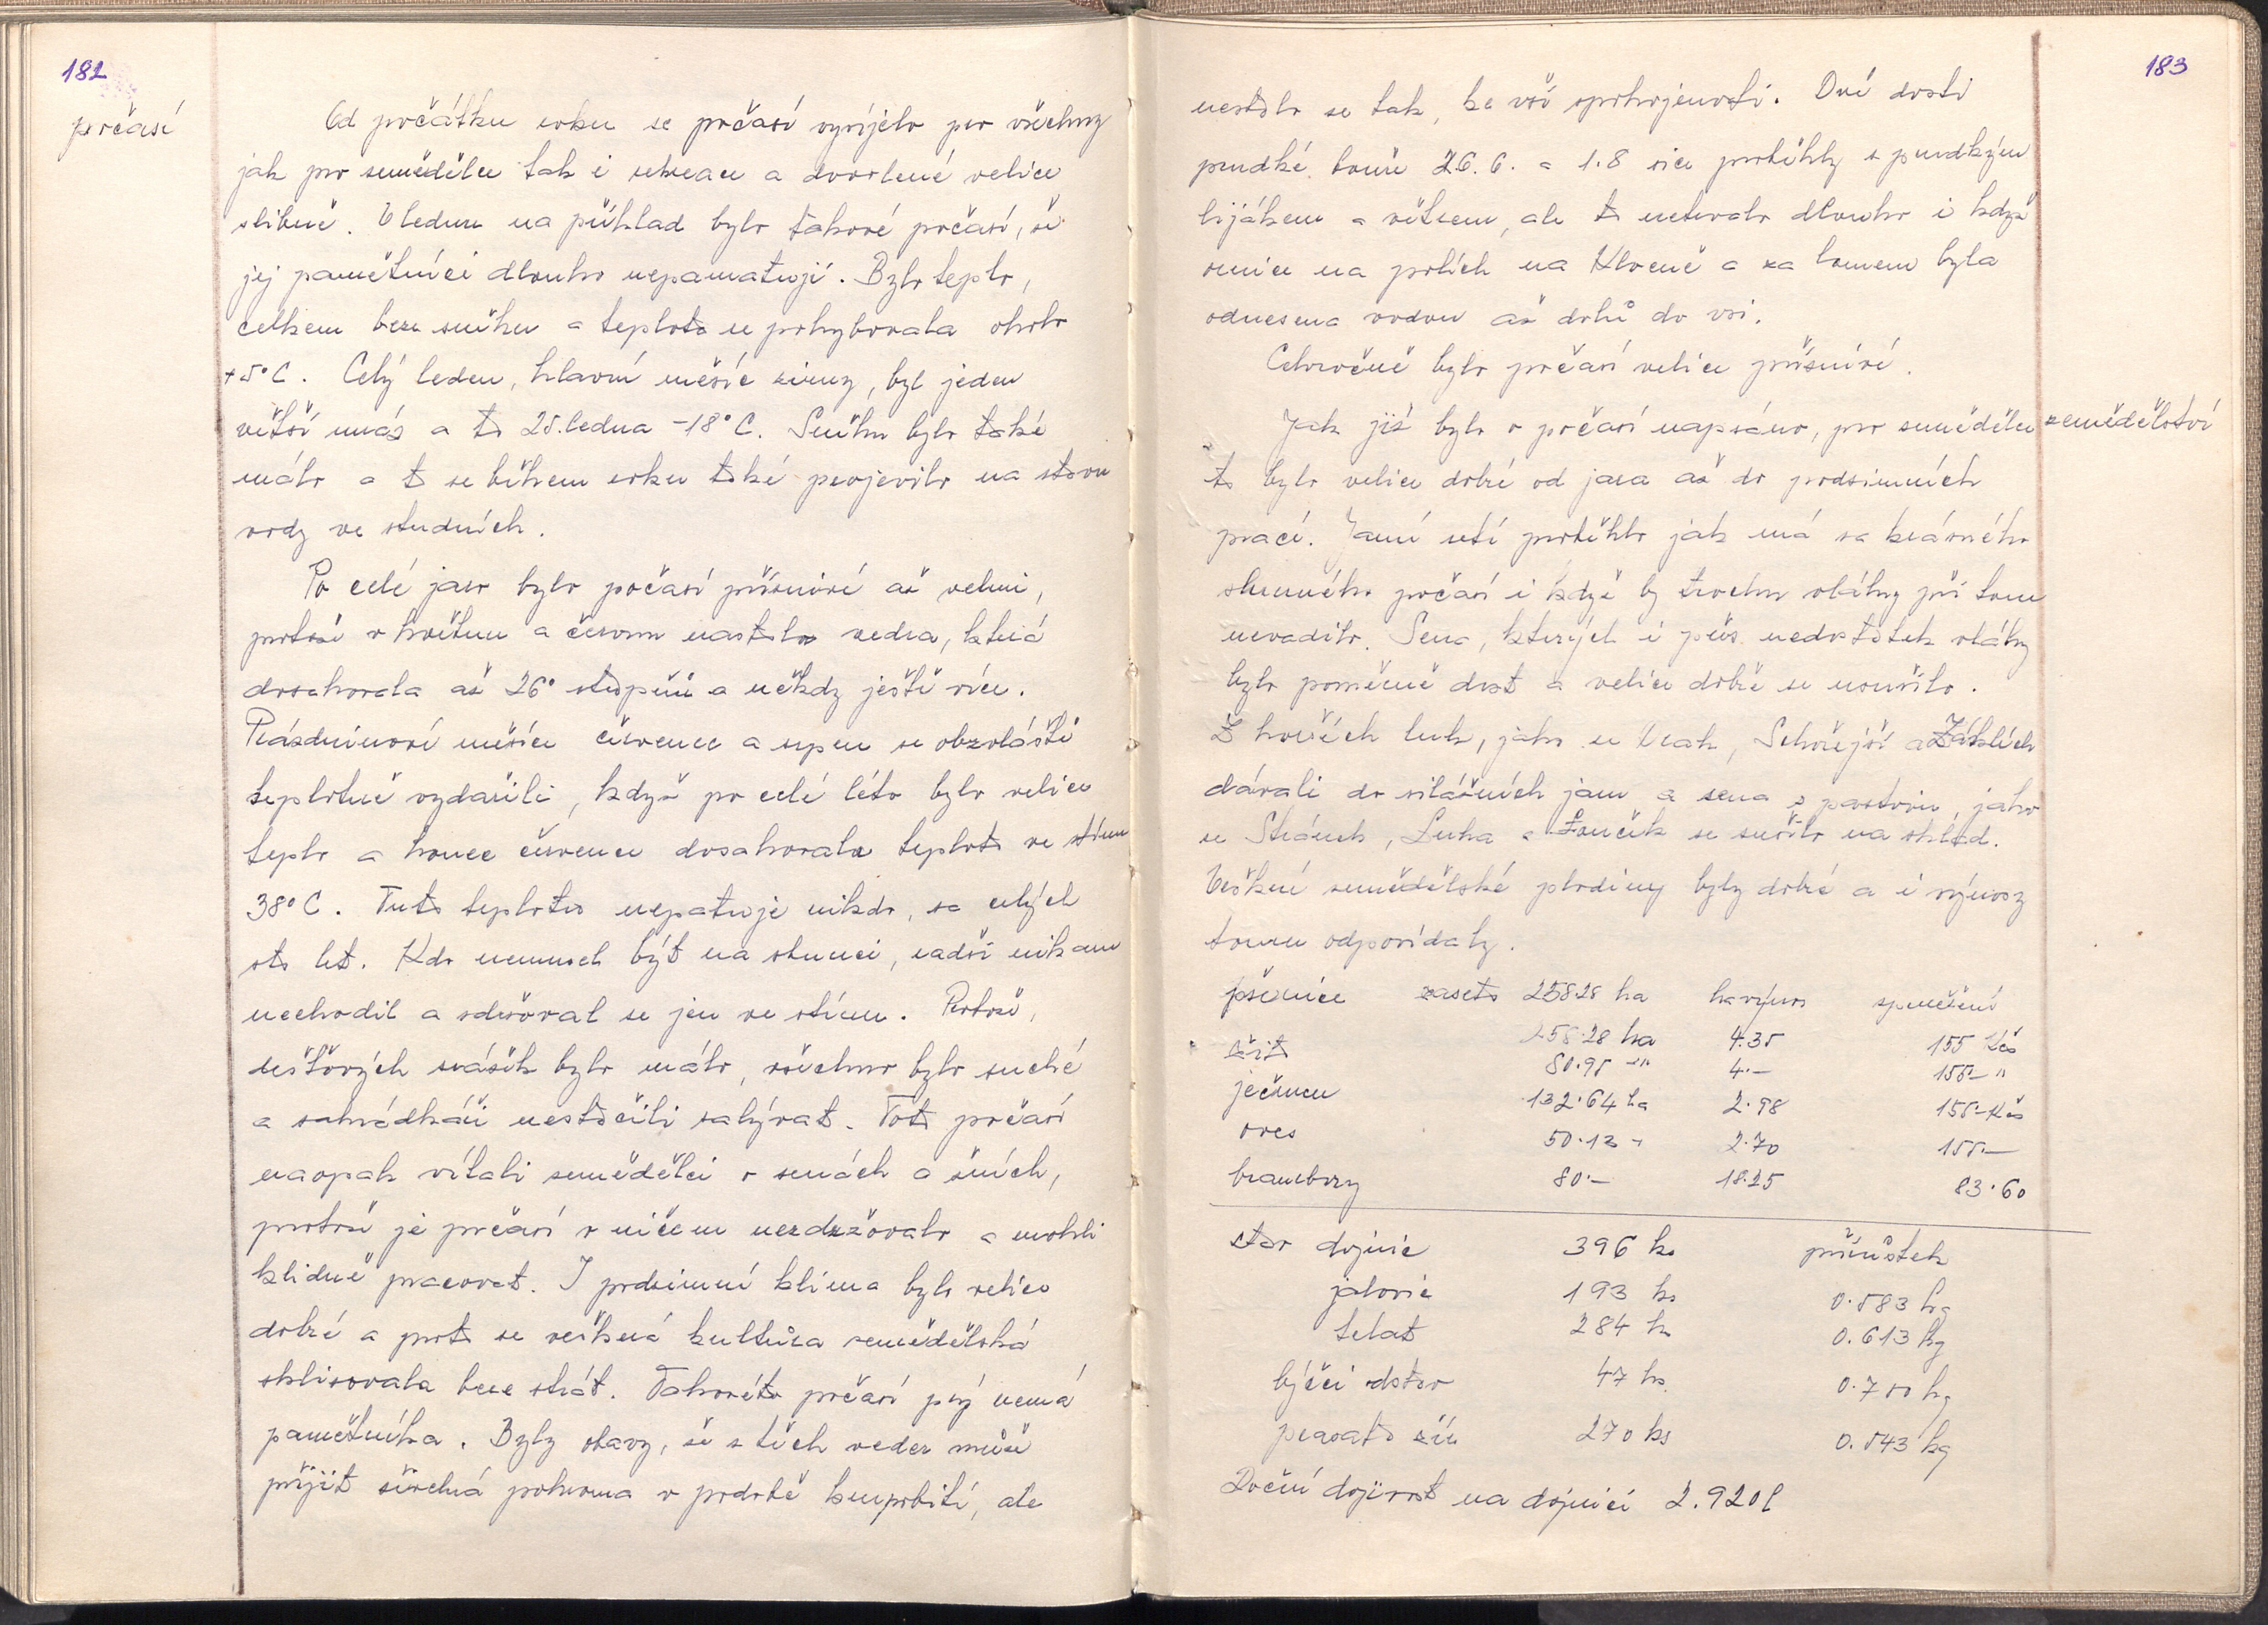 182
počasí
Od počátku roku se počasí vyvíjelo pro všechny
jak pro zemědělce tak i rekreace a dovolené velice
slibně. V lednu na příklad bylo takové počasí, že
jej pamětníci dlouho nepamatují. Bylo teplo,
celkem beze sněhu a teplota se pohybovala okolo
+5°C. Celý leden, hlavní měsíc zimy, byl jeden
větší mráz a to 25. ledna -18°C. Sněhu bylo také
málo a to se během roku také projevilo na stavu
vody ve studních.
Po celé jaro bylo počasí příznivé až velmi,
protože v květnu a červnu nastala vedra, která
dosahovala až 26° stupňů a někdy ještě více.
Prázdninové měsíce červenec a srpen se obzvláště
teplotně vydařili, když po celé léto bylo velice
teplo a konec července dosahovala teplota ve stínu
38°C. Tuto teplotu nepatuje nikdo, za celých
sto let. Kdo nemusel být na slunci, radši nikam
nechodil a zdržoval se jen ve stínu. Protože,
dešťových srážek bylo málo, všechno bylo suché
a zahrádkáři nestačili zalývat. Toto počasí
naopak vítali zemědělci v senách a žních,
protože je počasí v ničem nezdržovalo a mohli
klidně pracovat. I podzimní klima bylo velice
dobré a proto se veškerá kultůra zemědělská
sklizovala beze ztrát. Takovéto počasí prý nemá
pamětníka. Byly obavy, že z těch veder může
přijít živelná pohroma v podobě krupobití, ale
183
nestalo se tak, ke vší spokojenosti. Dvě dosti
prudké bouře 26.6. a 1.8 sice proběhly s prudkým
lijákem a větrem, ale to netrvalo dlouho i když
ornice na polích na Kloceně a za lomem byla
odnesena vodou až dolů do vsi.
Celoročně bylo počasí velice příznivé.
zemědělství
Jak již bylo o počasí napsáno, pro zemědělce
to bylo velice dobré od jara až do podzimních
prací. Jarní setí proběhlo jak má za krásného
slunného počasí i když by trochu vláhy při tom
nevadilo. Sena, kterých i přes nedostatek vláhy
bylo poměrně dost a velice dobře se usušilo.
Z horších luk, jako ze Vrak, Sehořejší a Záhlích
dávali do silážních jam a sena z pastvin, jako
ze Stránek, Luka a Louček se sušilo na sklad.
Veškeré zemědělské plodiny byly dobré a i výnosy
tomu odpovídaly.
pšenice zaseto 258.28 ha ha výnos zpeněžení
258.28 ha 4.35 155 Kčs
žito 80.95 -"- 4.- 155- "
ječmen 132.64 ha 2.98 155-Kčs
oves 50.13 " 2.70 155.-
brambory 80.- 18.25 83.60
stav dojnic 396 ks přírůstek
jalovic 193 ks 0.583 kg
telat 284 ks 0.613 kg
býčci odstav 47 ks 0.750 kg
prasata žír 270 ks 0.543 kg
Roční dojivost na dojnici 2.920 l